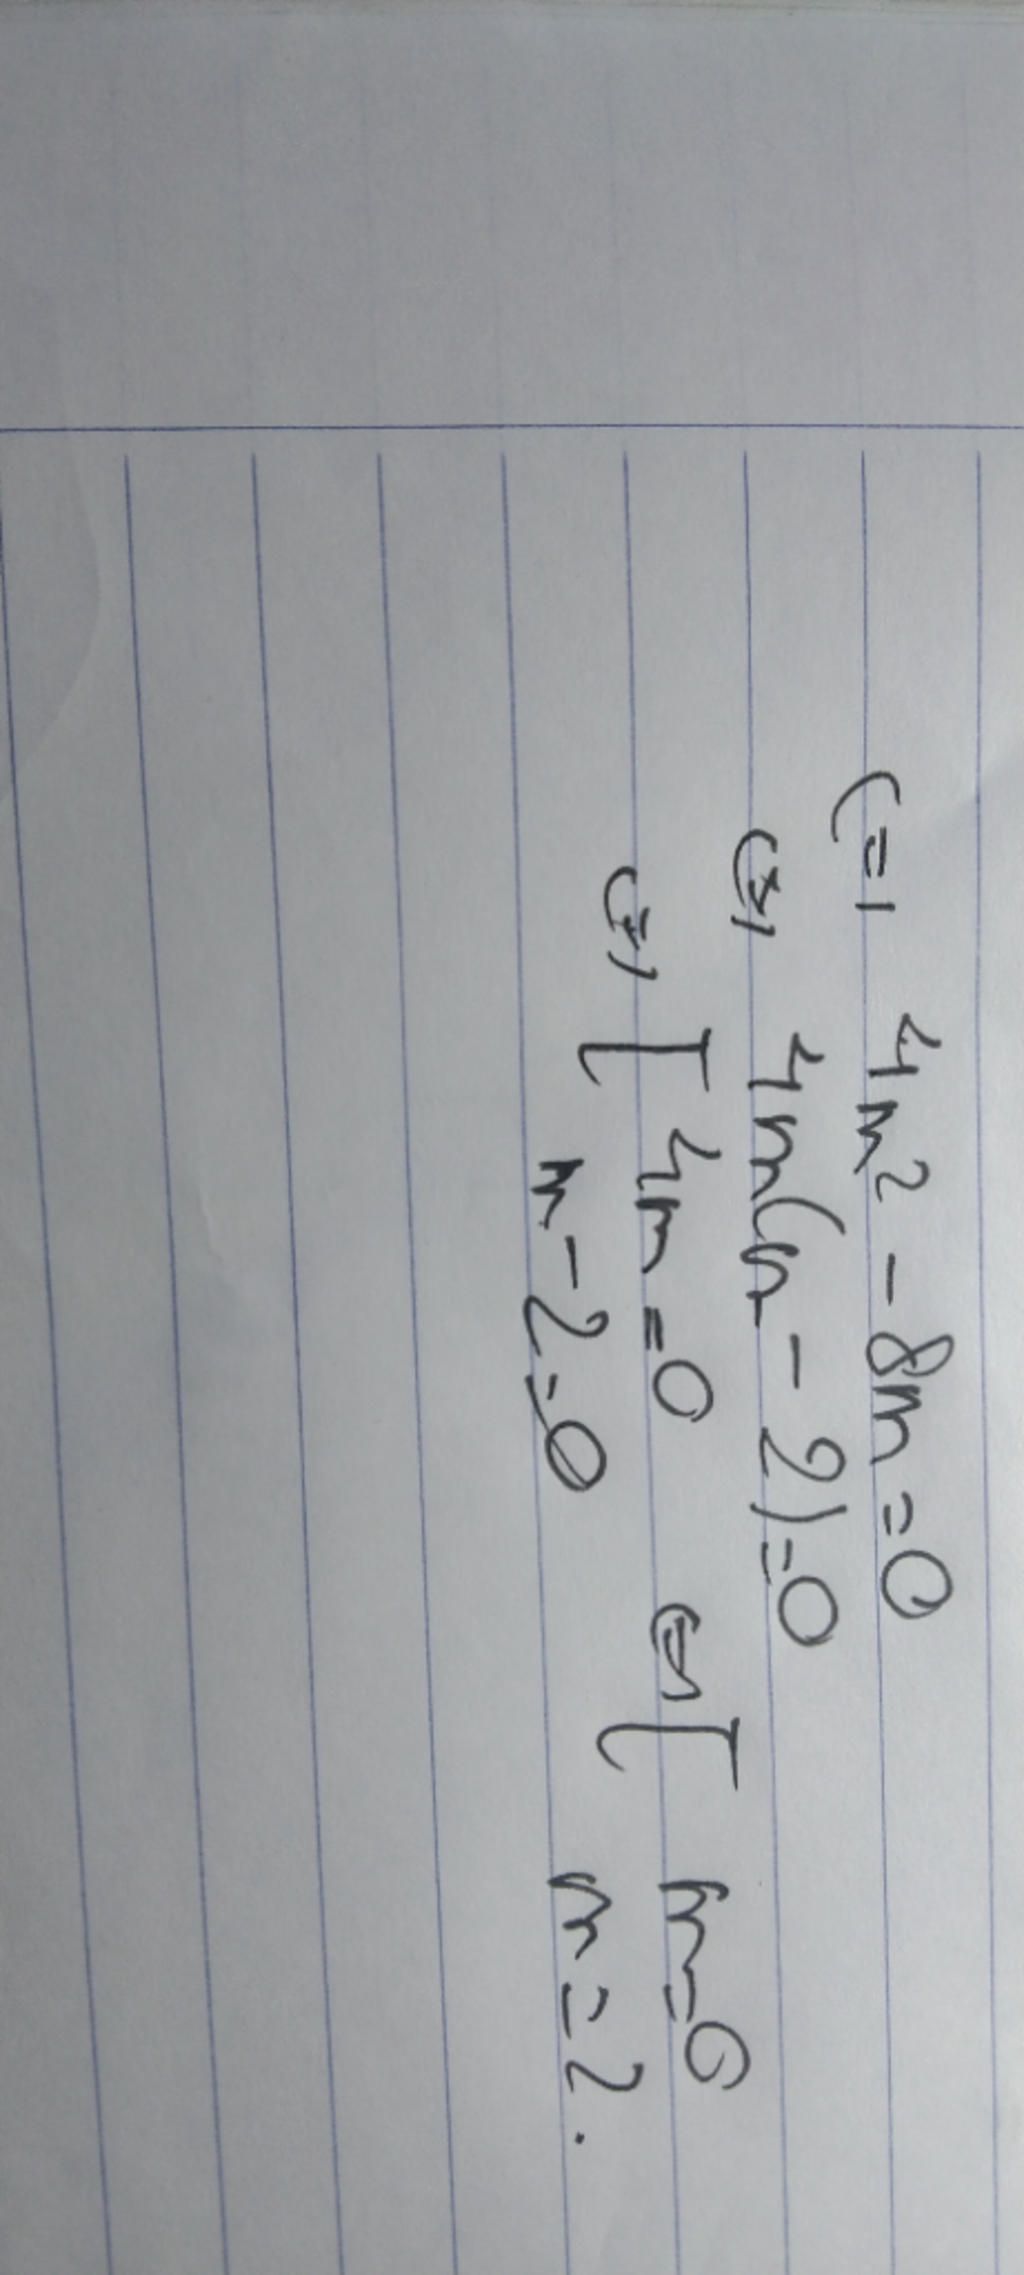 <=> 4m² - 8m = 0
<=> 4m(m - 2) = 0
<=> [ 4m = 0 <=> [ m = 0
m - 2 = 0 m = 2.